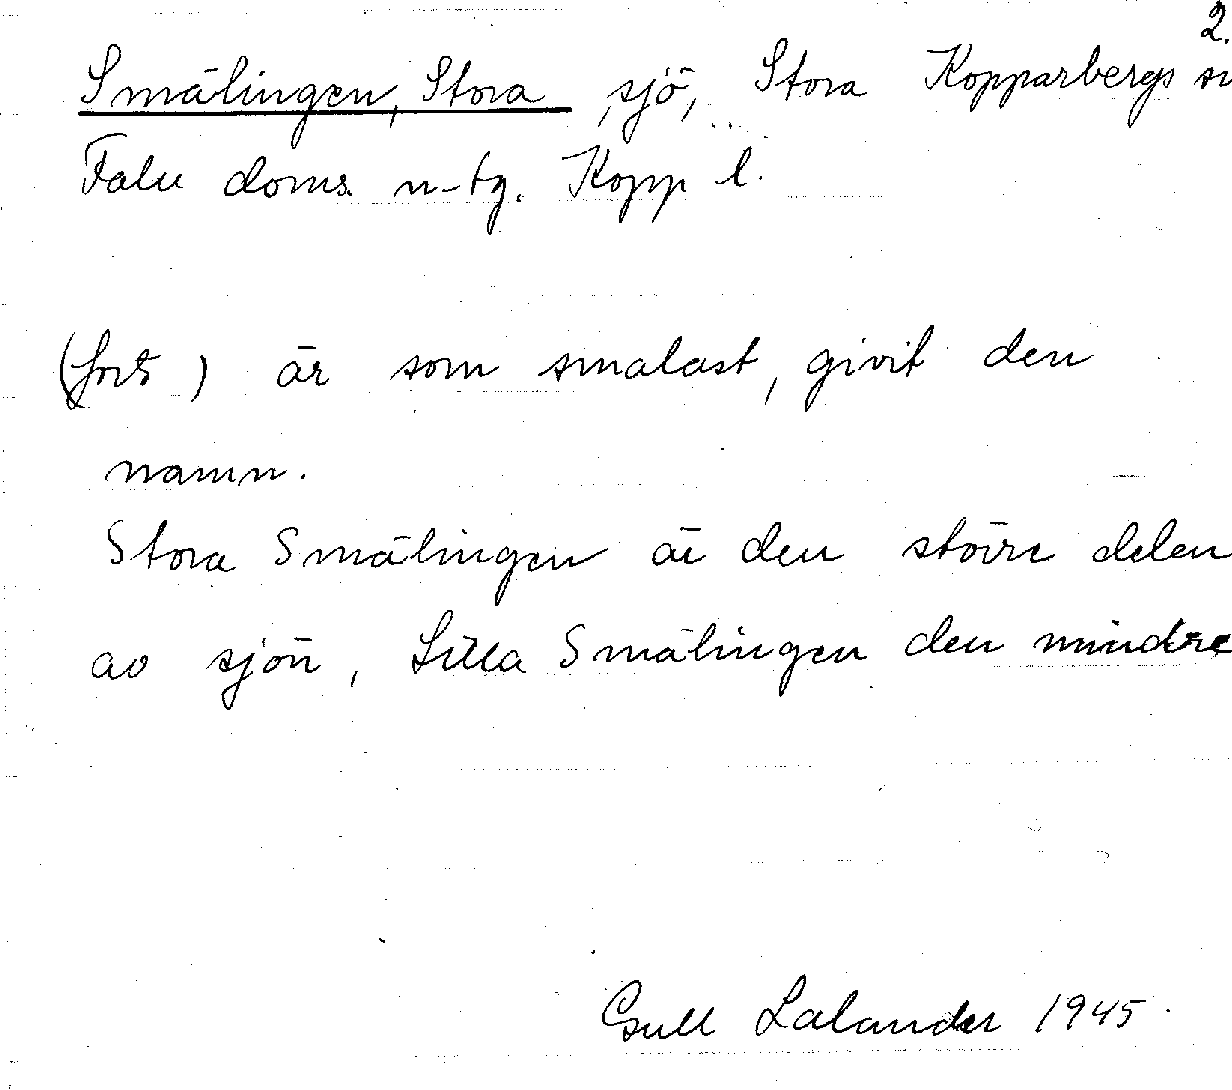 2.
Smälingen, Stora, sjö, Stora Kopparbergs sn
Falu doms. n-tg. Kopp l.
(forts) är som smalast, givit den
namn.
Stora Smälingen är den större delen
av sjön, Lilla Smälingen den mindre
Gull Lalander 1945.